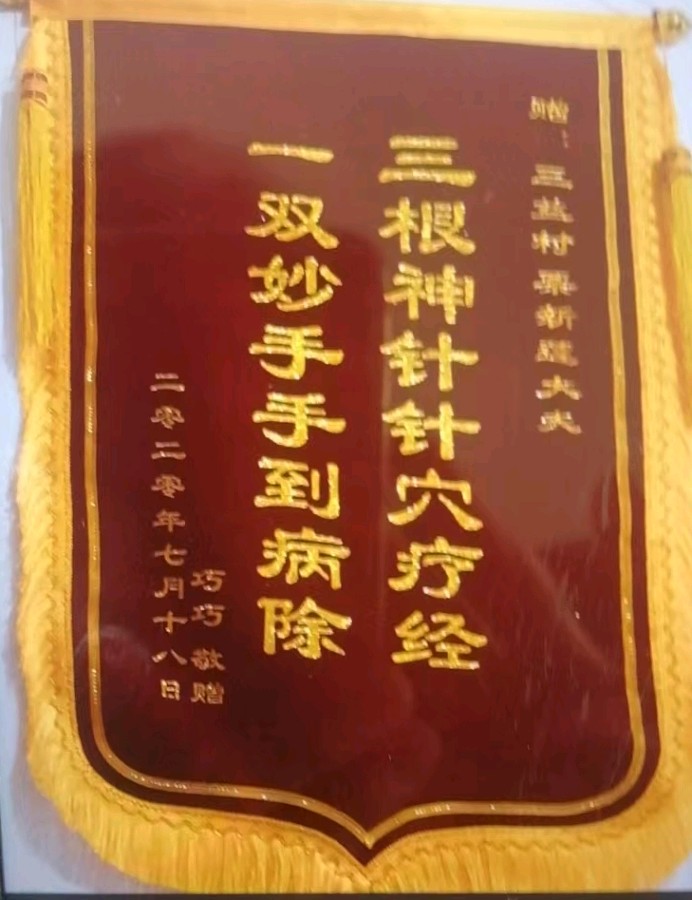 赠：三益村栗新建大夫
三根神针针穴疗经
一双妙手手到病除
巧巧 敬赠
二零二零年七月十八日